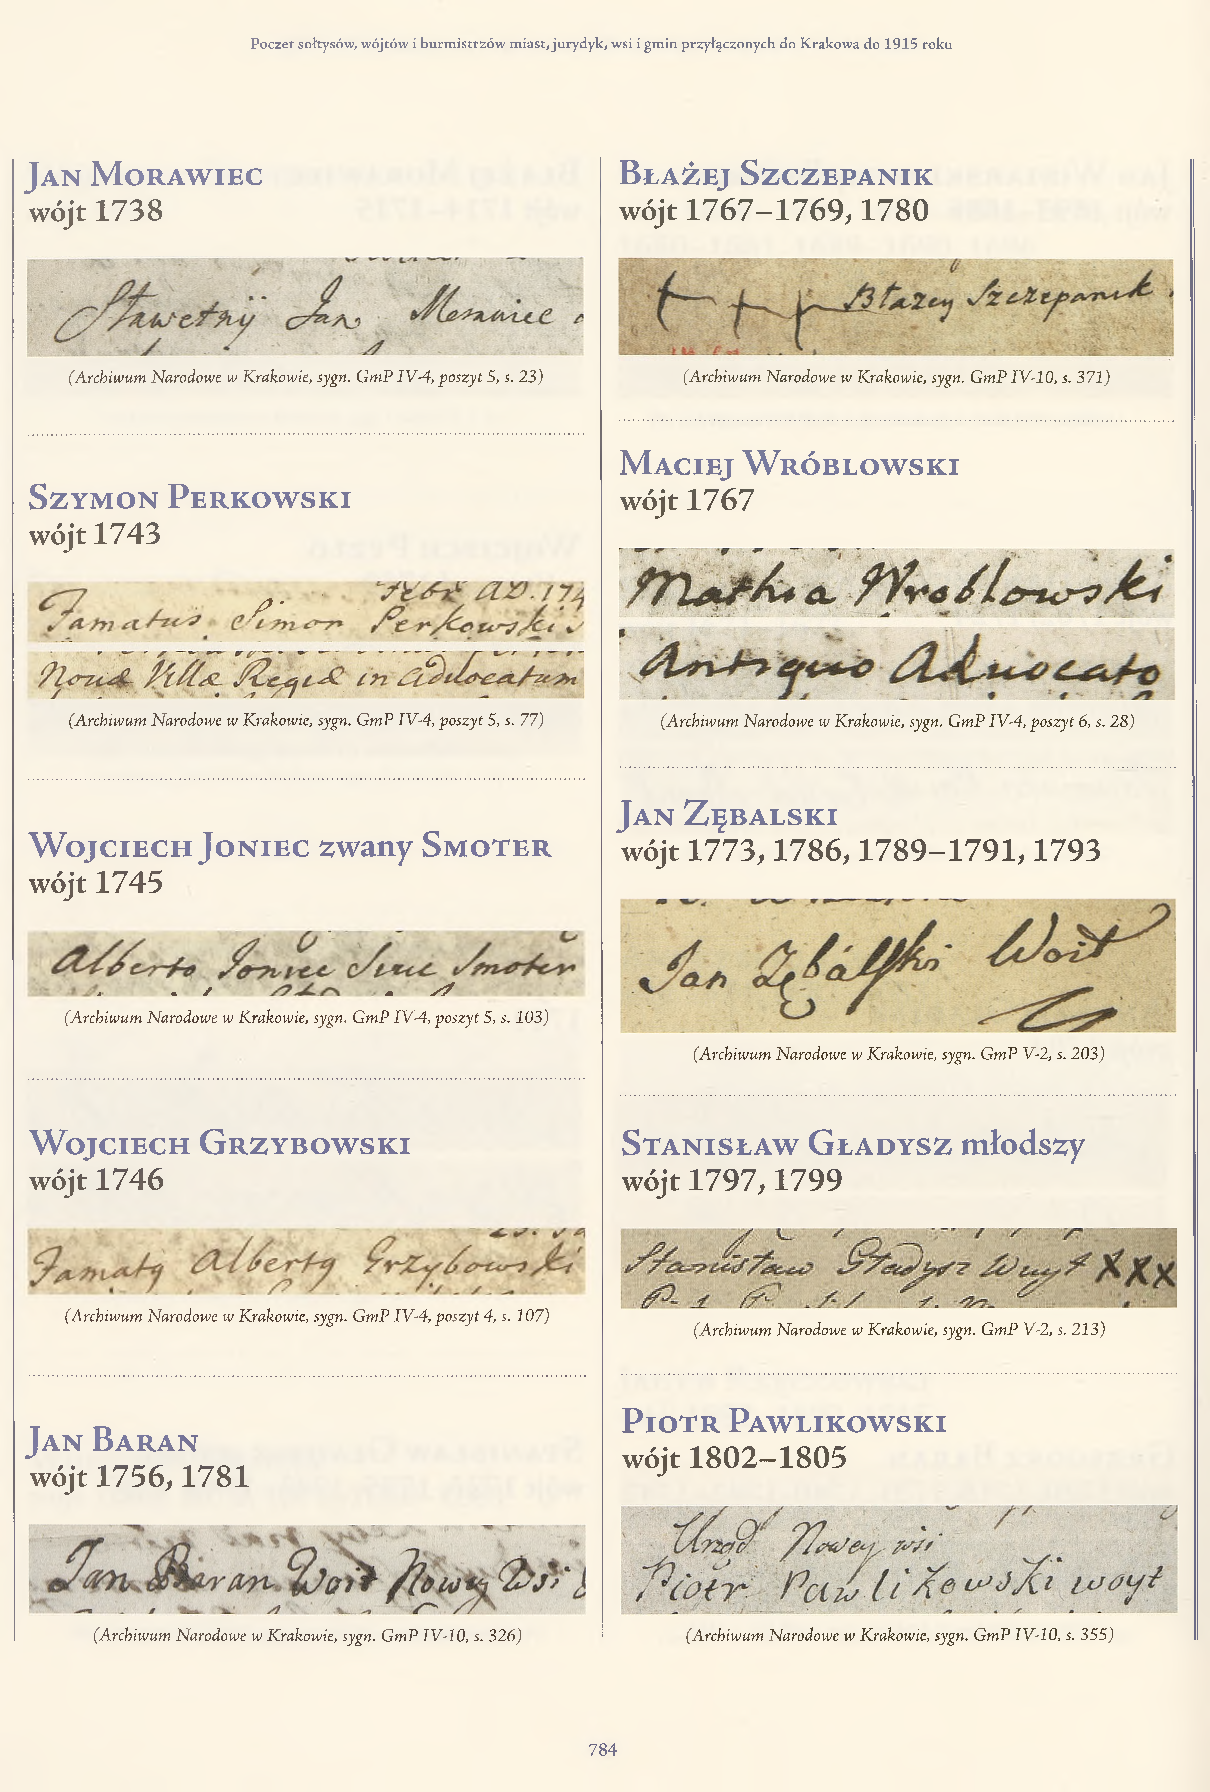 Poczet sołtysów, wójtów i burmistrzów miast, jurydyk, wsi i gmin przyłączonych do Krakowa do 1915 roku
Jan Morawiec
wójt 1738
Sławetnÿ Jan Morawiec
(Archiwum Narodowe w Krakowie, sygn. GmP IV-4, poszyt 5, s. 23)
Szymon Perkowski
wójt 1743
Febr AD. 174
Famatus Simon Perkowski
Novæ Villæ Regiæ in Advocatum
(Archiwum Narodowe w Krakowie, sygn. GmP IV-4, poszyt 5, s. 77)
Wojciech Joniec zwany Smoter
wójt 1745
Alberto Joniec Sive Smoter
(Archiwum Narodowe w Krakowie, sygn. GmP IV-4, poszyt 5, s. 103)
Wojciech Grzybowski
wójt 1746
Famatq Albertq Grzybowski
(Archiwum Narodowe w Krakowie, sygn. GmP IV-4, poszyt 4, s. 107)
Jan Baran
wójt 1756, 1781
Jan Baran Woit Nowey Wsi
(Archiwum Narodowe w Krakowie, sygn. GmP IV-10, s. 326)
Błażej Szczepanik
wójt 1767–1769, 1780
Błazey Szczepanik
(Archiwum Narodowe w Krakowie, sygn. GmP IV-10, s. 371)
Maciej Wróblowski
wójt 1767
Mathia Wroblowski
Antiquo Advocato
(Archiwum Narodowe w Krakowie, sygn. GmP IV-4, poszyt 6, s. 28)
Jan Zębalski
wójt 1773, 1786, 1789–1791, 1793
Jan Zębálſki Woit
(Archiwum Narodowe w Krakowie, sygn. GmP V-2, s. 203)
Stanisław Gładysz młodszy
wójt 1797, 1799
Stanisław Gładysz Wuyt XXX
(Archiwum Narodowe w Krakowie, sygn. GmP V-2, s. 213)
Piotr Pawlikowski
wójt 1802–1805
Urząd Nowey wsi
Piotr Pawlikowski woyt
(Archiwum Narodowe w Krakowie, sygn. GmP IV-10, s. 355)
784